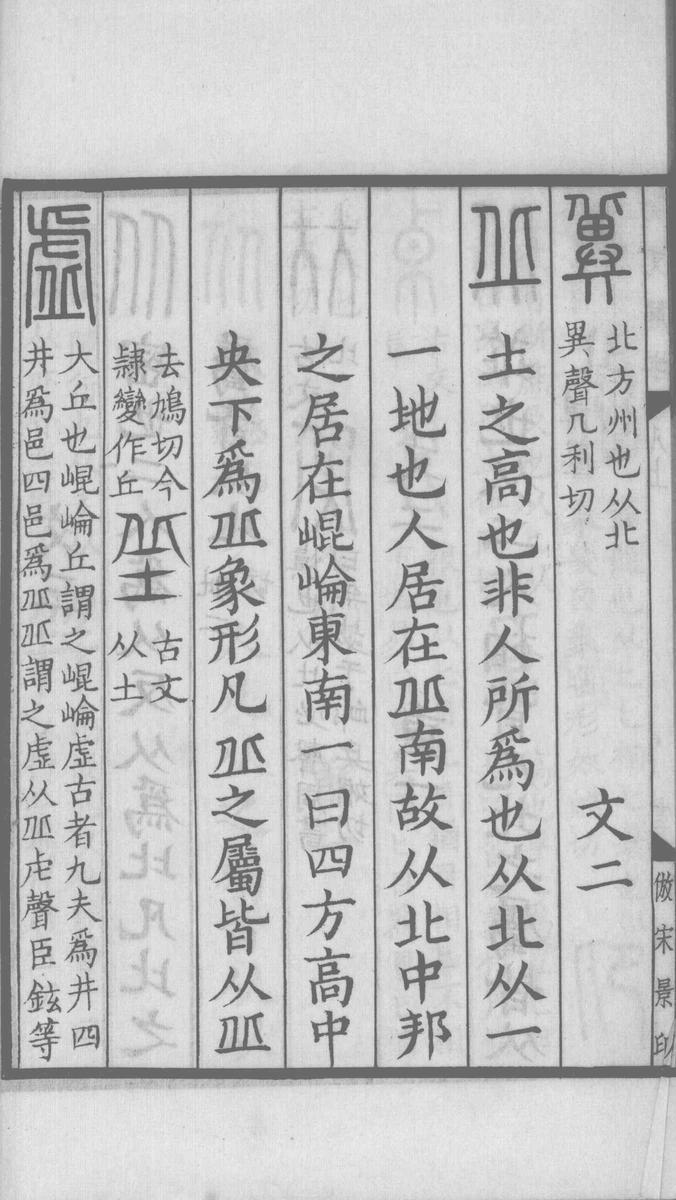 倣宋景印
冀 北方州也从北
異聲几利切
文二
丠 土之高也非人所爲也从北从一
一地也人居在丠南故从北中邦
之居在崐崘東南一曰四方高中
央下爲丠象形凡丠之屬皆从丠
去鳩切今
隸變作丘
𡊣 古文
从土
虛 大丘也崐崘丘謂之崐崘虛古者九夫爲井四
井爲邑四邑爲丠丠謂之虛从丠虍聲臣鉉等